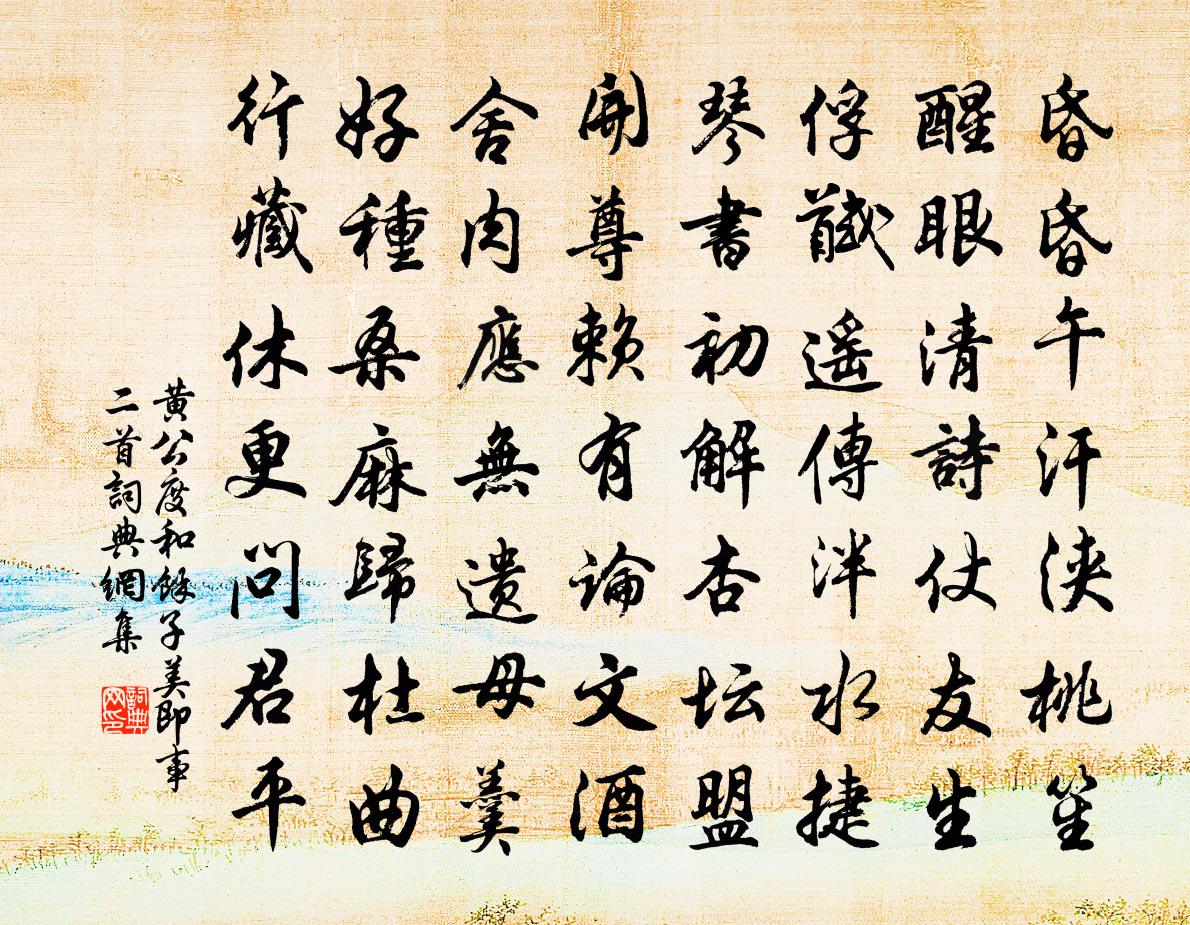 昏昏午汗浹桃笙
醒眼清詩仗友生
俘馘遥傳泮水捷
琴書初解杏坛盟
開尊賴有論文酒
舍肉應無遺母羹
好種桑麻歸杜曲
行藏休更問君平
黄公度和餘子美即事
二首詞典網集
詞典
网印